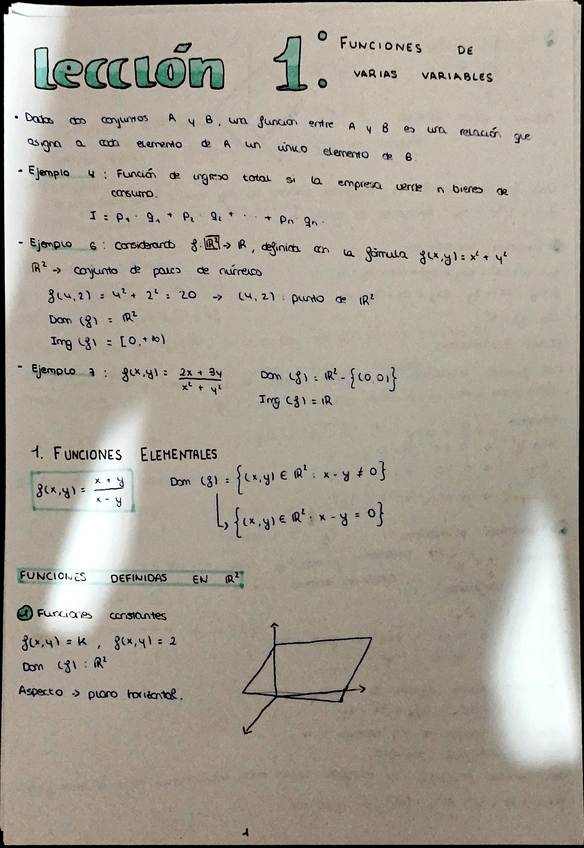 lección 1: FUNCIONES DE
VARIAS VARIABLES
• Dados dos conjuntos A y B, una función entre A y B es una relación que
asigna a cada elemento de A un único elemento de B.
- Ejemplo 4: Función de ingreso total si la empresa vende n bienes de
consumo.
I = p₁ · q₁ + p₂ · q₂ + ··· + pn qn.
- Ejemplo 6: Considerando f: ℝ² → ℝ, definida con la fórmula f(x,y) = x² + y²
ℝ² → conjunto de pares de números
f(4,2) = 4² + 2² = 20 → (4,2): punto de ℝ²
Dom (f) = ℝ²
Img (f) = [0,+∞)
- Ejemplo 7: f(x,y) = (2x + 3y)/(x² + y²) Dom (f) = ℝ² - {(0,0)}
Img (f) = ℝ
1. FUNCIONES ELEMENTALES
f(x,y) = (x + y)/(x - y) Dom (f) = {(x,y) ∈ ℝ² : x - y ≠ 0}
↳ {(x,y) ∈ ℝ² : x - y = 0}
FUNCIONES DEFINIDAS EN ℝ²
① Funciones constantes
f(x,y) = K, f(x,y) = 2
Dom (f) : ℝ²
Aspecto → plano horizontal.
1